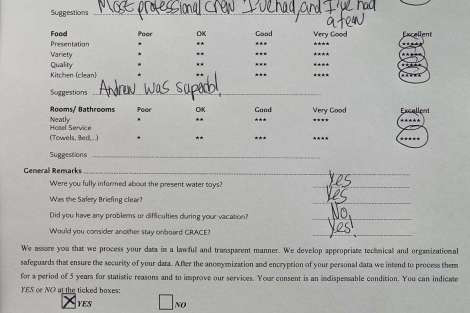 Suggestions Most professional crew I've had, and I've had
a few
Food Poor OK Good Very Good Excellent
Presentation * ** *** **** *****
Variety * ** *** **** *****
Quality * ** *** **** *****
Kitchen (clean) * ** *** **** *****
Suggestions Andrew was superb!
Rooms/ Bathrooms Poor OK Good Very Good Excellent
Neatly * ** *** **** *****
Hotel Service
(Towels, Bed,..) * ** *** **** *****
Suggestions
General Remarks
Were you fully informed about the present water toys? Yes
Was the Safety Briefing clear? Yes
Did you have any problems or difficulties during your vacation? No
Would you consider another stay onboard GRACE? Yes!
We assure you that we process your data in a lawful and transparent manner. We develop appropriate technical and organizational
safeguards that ensure the security of your data. After the anonymization and encryption of your personal data we intend to process them
for a period of 5 years for statistic reasons and to improve our services. Your consent is an indispensable condition. You can indicate
YES or NO at the ticked boxes:
YES NO